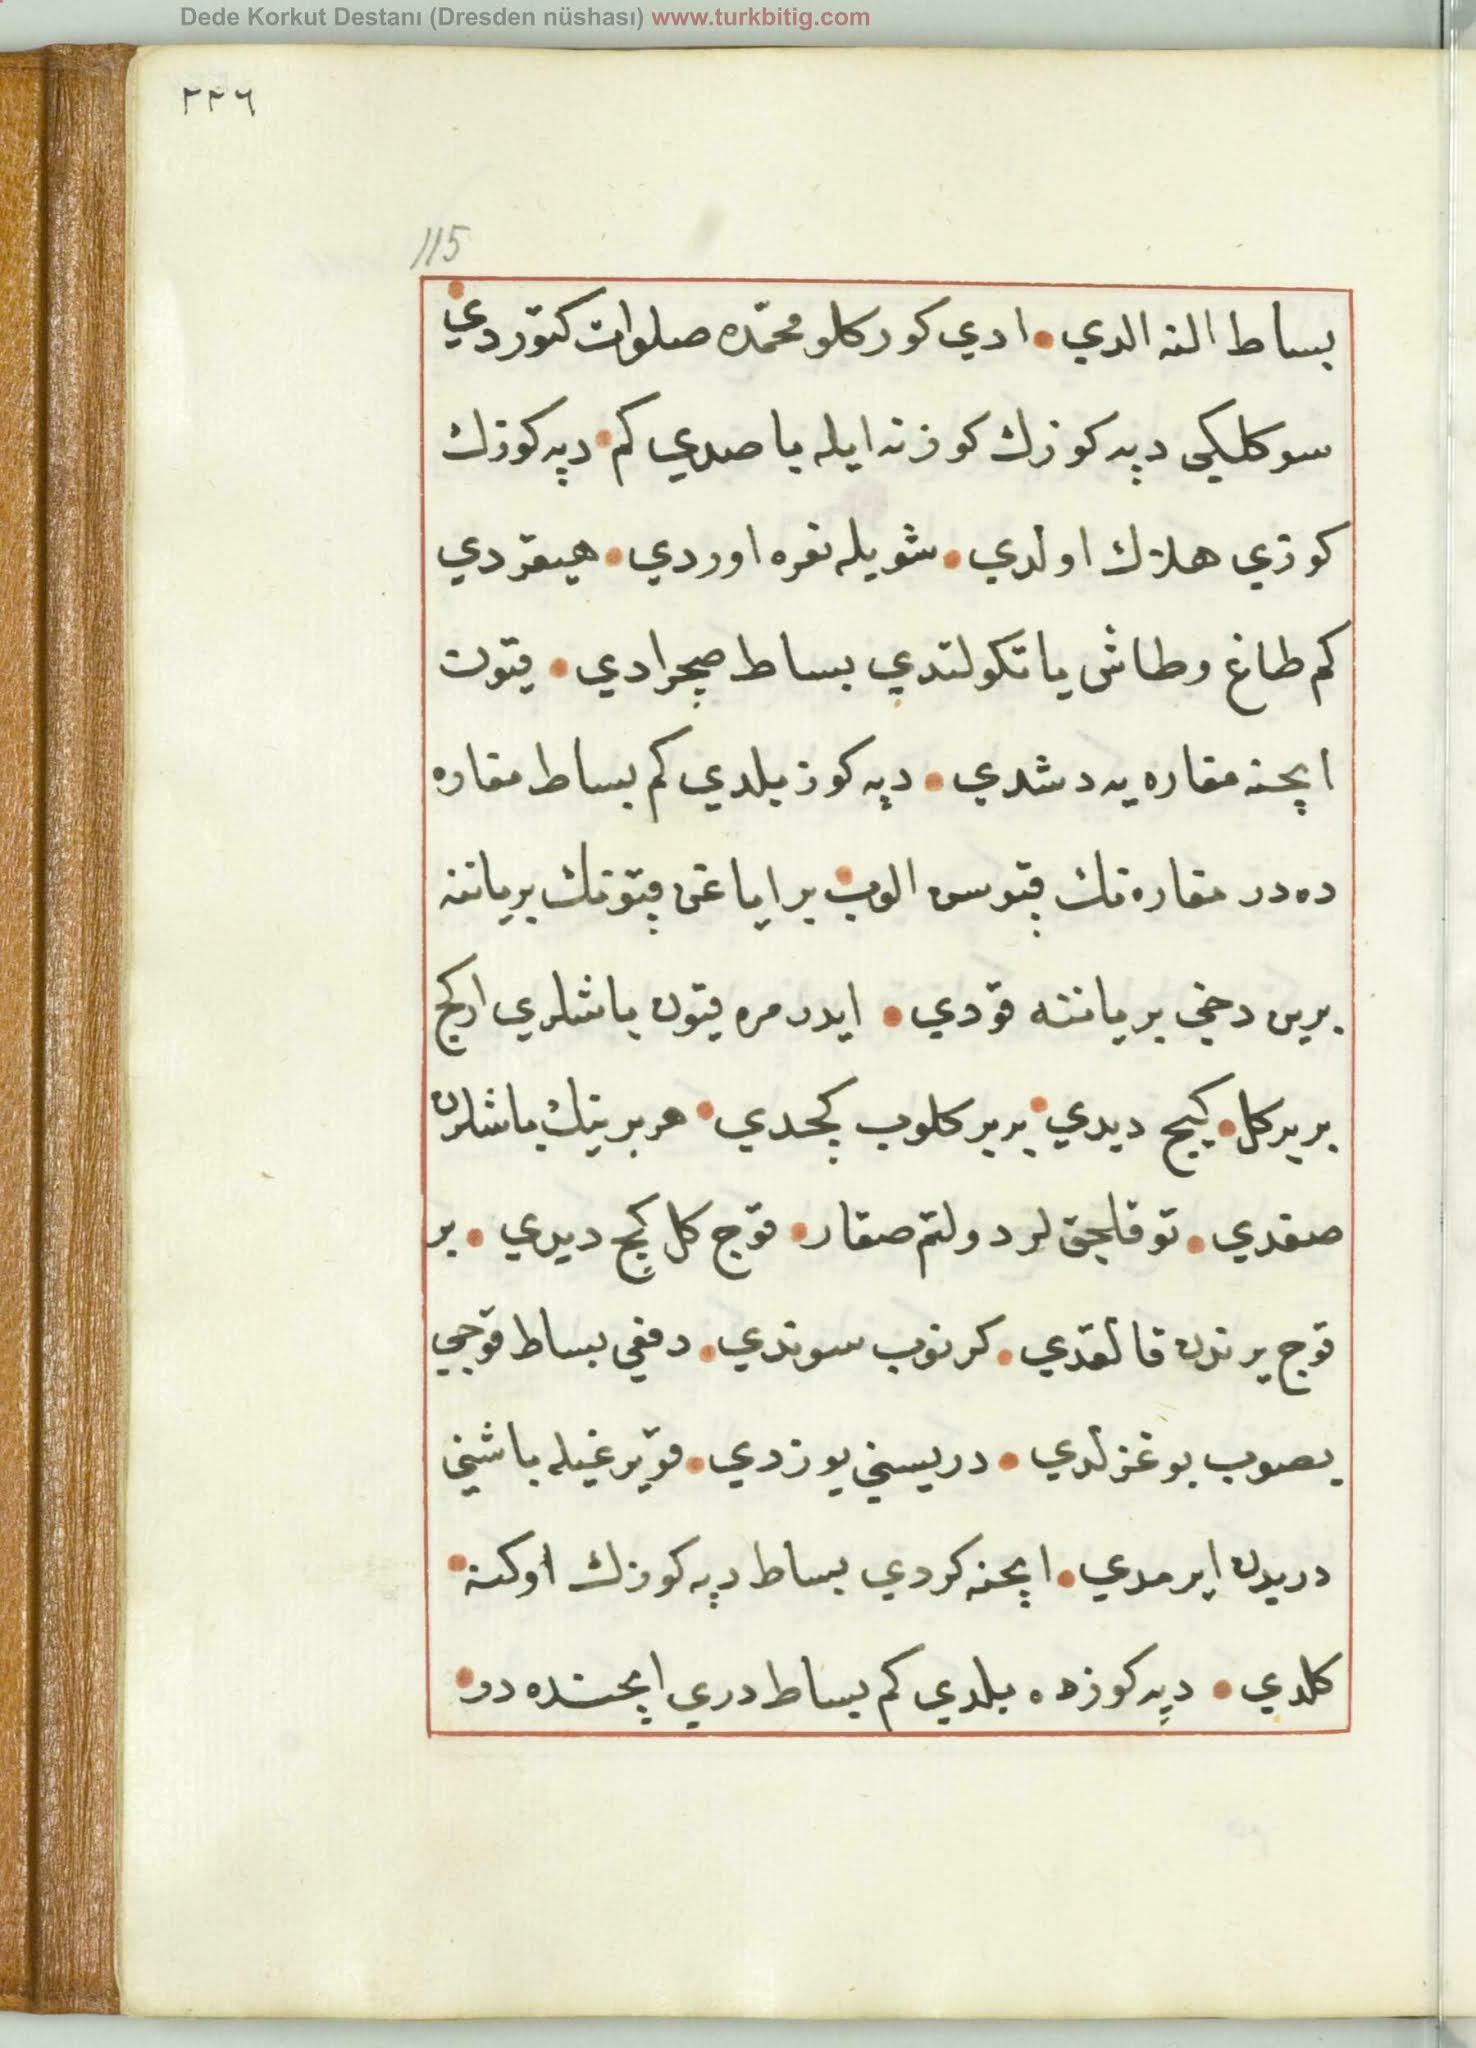 Dede Korkut Destanı (Dresden nüshası) www.turkbitig.com
٢٢٦
115
بساط النه الدي • ادي كوركلو محمّده صلوات كتوردي •
سوكلكي دپه كوزك كوزنه ايله باصدي كم • دپه كوزك
كوزي هلاك اولدي • شويله نعره اوردي • هيقردي
كم طاغ وطاش يانكولندي بساط صچرادي • قيون
ايچنه مغاره يه دشدي • دپه كوز بلدي كم بساط مغاره
ده در مغاره نك قپوسن الوب • بر اياغن قپونك بر ياننه
برين دخي بر ياننه قودي • ايدر مره قيون باشلري اركج
بر بر كل • كيچ ديدي • بر بر كلوب كچدي • هر برينك باشلرن
صغدي • توقلجقلر دولتم صقار • قوچ كل كچ ديدي • بر
قوچ يرندن قالقدي • كرنوب سوندي • دفعي بساط قوچي
بصوب بوغزلدي • دريسني يوزدي • قويرغيله باشني
دريدن ايرمدي • ايچنه كردي بساط دپه كوزك اوكنه •
كلدي • دپه كوزده بلدي كم بساط دري ايچنده در •